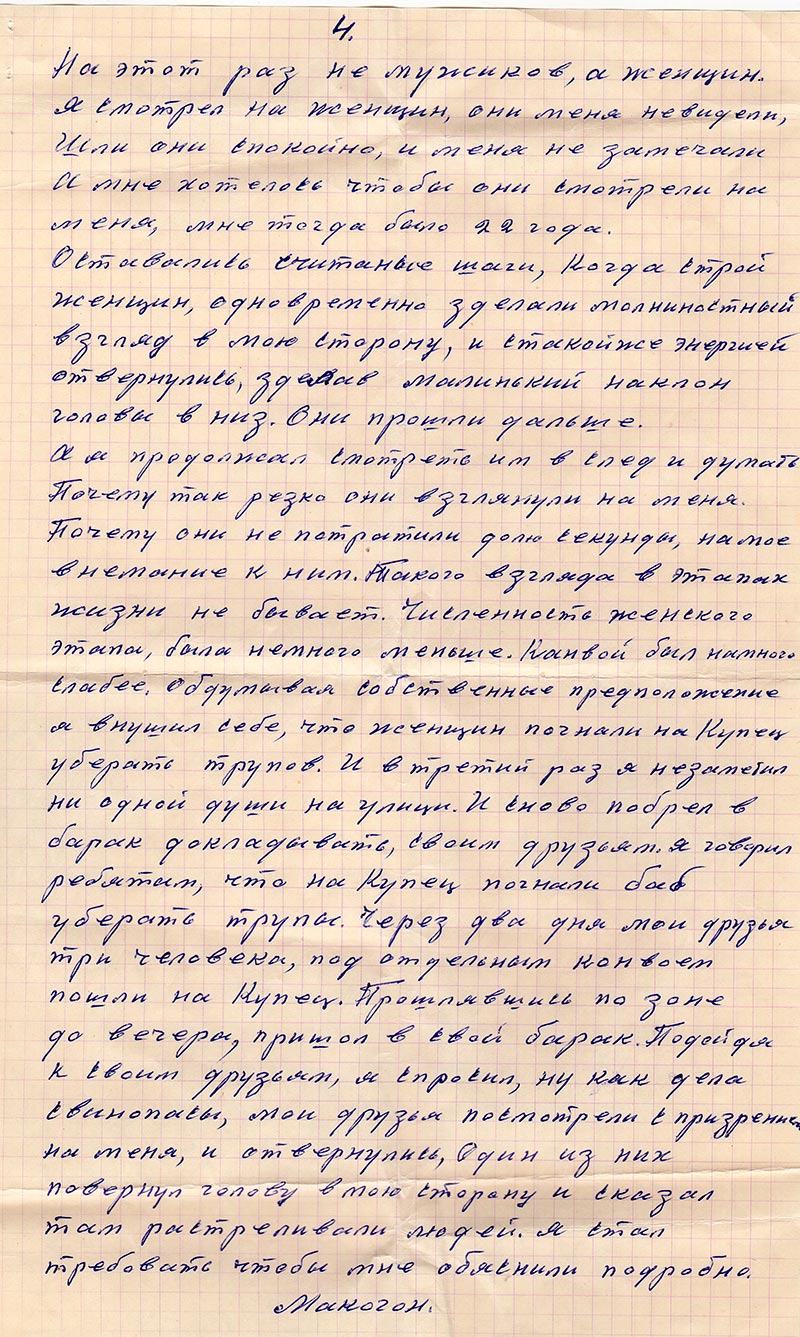 4.
На этот раз не мужиков, а женщин.
Я смотрел на женщин, они меня невидели,
Шли они спокойно, и меня не замечали
А мне хотелось чтобы они смотрели на
меня, мне тогда было 22 года.
Оставались считаные шаги, когда строй
женщин, одновременно зделали молниностный
взгляд в мою сторону, и стакойже энергией
отвернулись, зделав малинький наклон
головы в низ. Они прошли дальше.
А я продолжал смотреть им в след и думать
Почему так резко они взглянули на меня.
Почему они не потратили долю секунды, на мое
внемание к ним. Такого взгляда в этапах
жизни не бывает. Численность женского
этапа, была немного меньше. Канвой был намного
слабее. Обдумывая собственные предположение
я внушил себе, что женщин погнали на Купец
уберать трупов. И в третий раз я незаметил
ни одной души на улици. И сново побрел в
барак докладывать, своим друзьям. Я говорил
ребятам, что на Купец погнали баб
уберать трупы. Через два дня мои друзья
три человека, под отдельным конвоем
пошли на Купец. Прошлявшись по зоне
до вечера, пришол в свой барак. Подойдя
к своим друзьям, я спросил, ну как дела
свинопасы, мои друзья посмотрели с призрением
на меня, и отвернулись, Один из них
повернул голову в мою сторону и сказал
там растреливали людей. Я стал
требовать чтобы мне обяснили подробно.
Макогон.